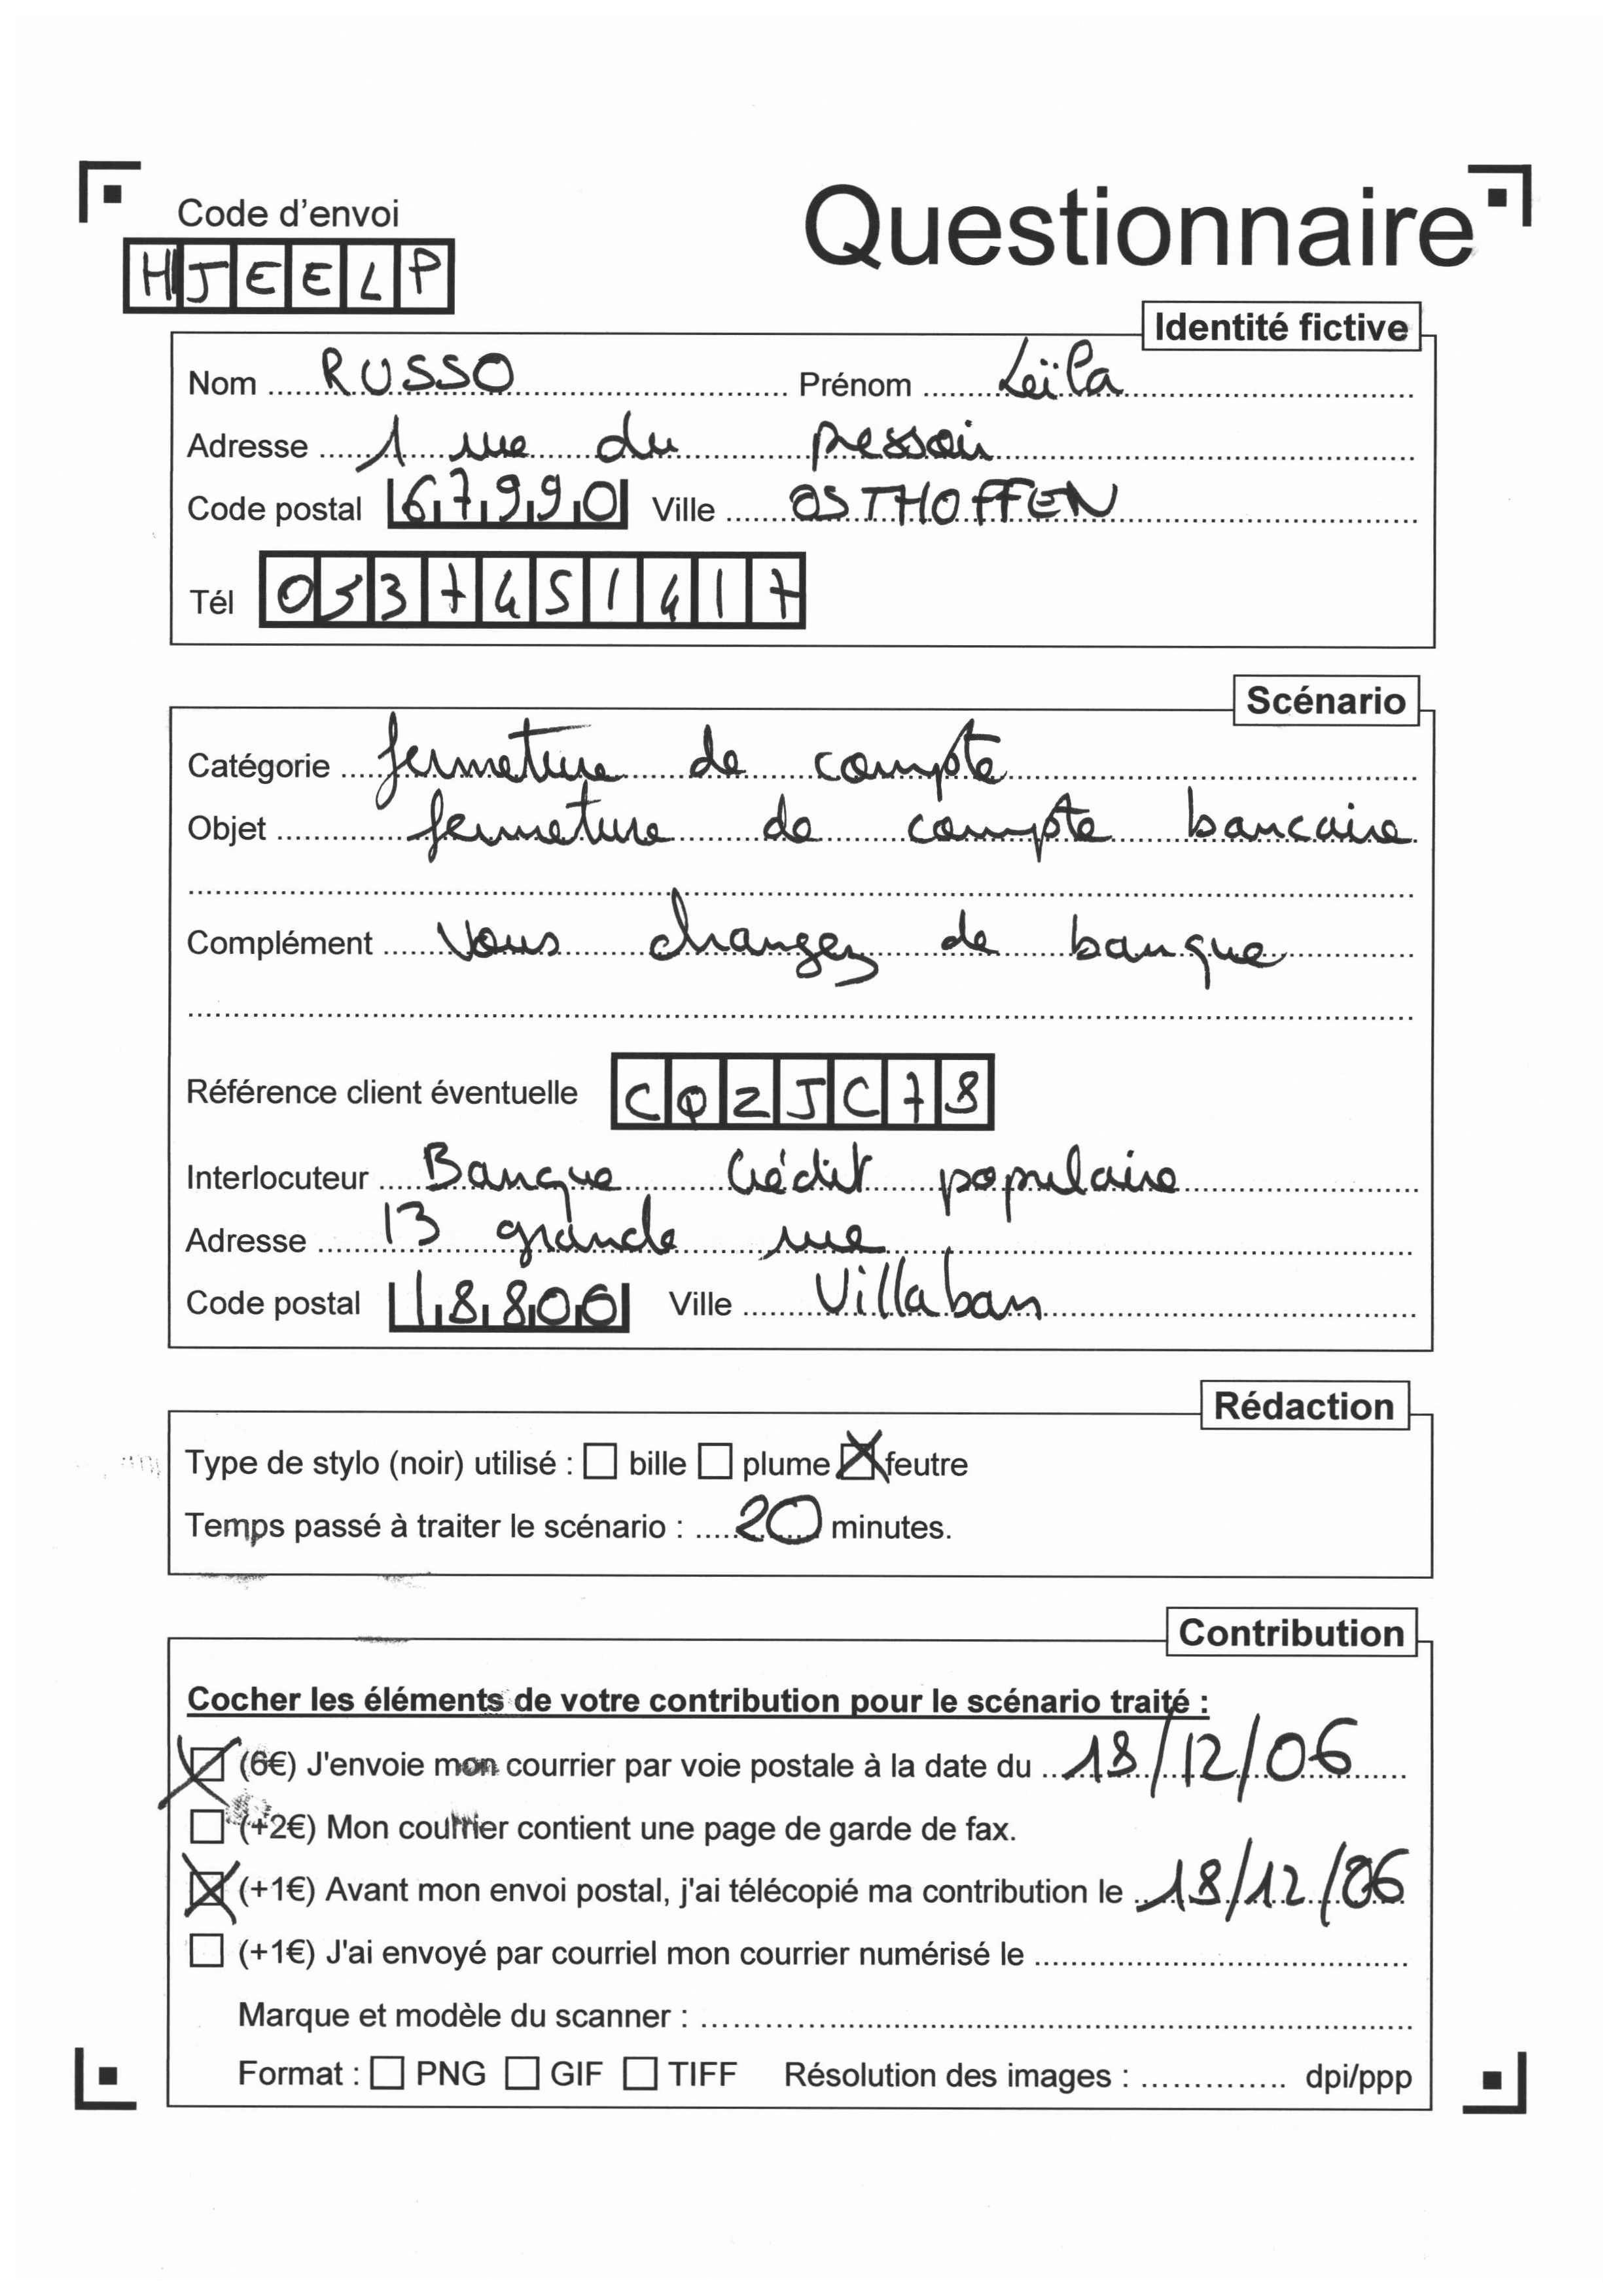 Code d'envoi
Questionnaire
HJEELP
Identité fictive
Nom RUSSO Prénom Leïla
Adresse 1 rue du pressoir
Code postal 67990 Ville OSTHOFFEN
Tél 0337451417
Scénario
Catégorie fermeture de compte
Objet fermeture de compte bancaire
Complément Vous changez de banque
Référence client éventuelle CQZJC78
Interlocuteur Banque Crédit populaire
Adresse 13 grande rue
Code postal 18806 Ville Villaban
Rédaction
Type de stylo (noir) utilisé : bille plume feutre
Temps passé à traiter le scénario : 20 minutes.
Contribution
Cocher les éléments de votre contribution pour le scénario traité :
(6€) J'envoie mon courrier par voie postale à la date du 18/12/06
(+2€) Mon courrier contient une page de garde de fax.
(+1€) Avant mon envoi postal, j'ai télécopié ma contribution le 18/12/06
(+1€) J'ai envoyé par courriel mon courrier numérisé le
Marque et modèle du scanner :
Format : PNG GIF TIFF Résolution des images : dpi/ppp